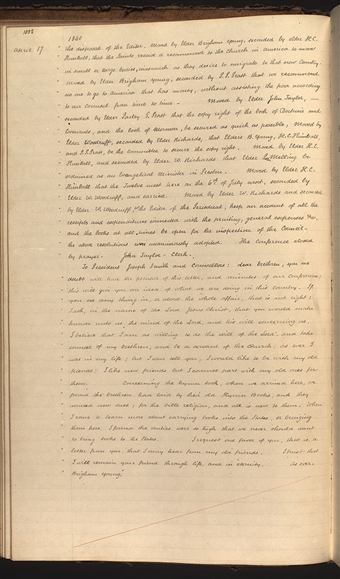 1052
1840
April 17 " the disposal of the Editor. Moved by Elder Brigham Young, seconded by elder H.C.
" Kimball, that the Saints receive a recommend to the church in America to move
" in small or large bodies, inasmuch as they desire to emigrate to that new Country.
" Moved by Elder Brigham Young, seconded by P.P. Pratt that we recommend
" no one to go to America that has money, without assisting the poor according
" to our counsel from time to time. Moved by Elder John Taylor,—
" seconded by Elder Parley P. Pratt that the copy right of the book of Doctrine and
" Covenants, and the book of Mormon, be secured as quick as possible. Moved by
" Elder Woodruff, seconded by Elder Richards, that Elders B. Young, H.C. Kimball,
" and P.P. Pratt, be the Committee to secure the copy right. Moved by Elder H.C.
" Kimball, and seconded by Elder W. Richards that Elder Melling be
" ordained as an Evangelical Minister in Preston. Moved by Elder H.C.
" Kimball that the Twelve meet here on the 6th of July next, seconded by
" Elder W. Woodruff, and carried. Moved by Elder W. Richards and seconded
" by Elder W. Woodruff that the Editor of the Periodical, keep an account of all the
" receipts and expenditures connected with the printing, general expenses &c,
" and the books at all times be open for the inspection of the Council.
" the above resolutions was unanimously adopted. The conference closed
" by prayer. John Taylor — Clerk.
" To President Joseph Smith and Counsellors: dear brethren, you no
" doubt will have the perusal of this letter, and minutes of our Conference;
" this will give you an idea of what we are doing in this country. If
" you see any thing in, or about the whole affair, that is not right:
" I ask, in the name of the Lord Jesus Christ, that you would make
" known unto us the mind of the Lord, and his will concerning us.
" I believe that I am as willing to do the will of the Lord, and take
" counsel of my brethren, and be a servant of the church, as ever I
" was in my life; but I can tell you, I would like to be with my old
" friends; I like new friends but I cannot part with my old ones for
" them. Concerning the hymn book, when we arrived here, we
" found the brethren had laid by their old Hymn Books, and they
" wanted new ones; for the bible religion, and all is new to them. When
" I come to learn more about carrying books into the States, or bringing
" them here, I found the duties were so high that we never should want
" to bring books to the States. I request one favor of you, that is, a
" letter from you, that I may hear from my old friends. I trust that
" I will remain your friend through life, and in eternity. As ever.
" Brigham Young."